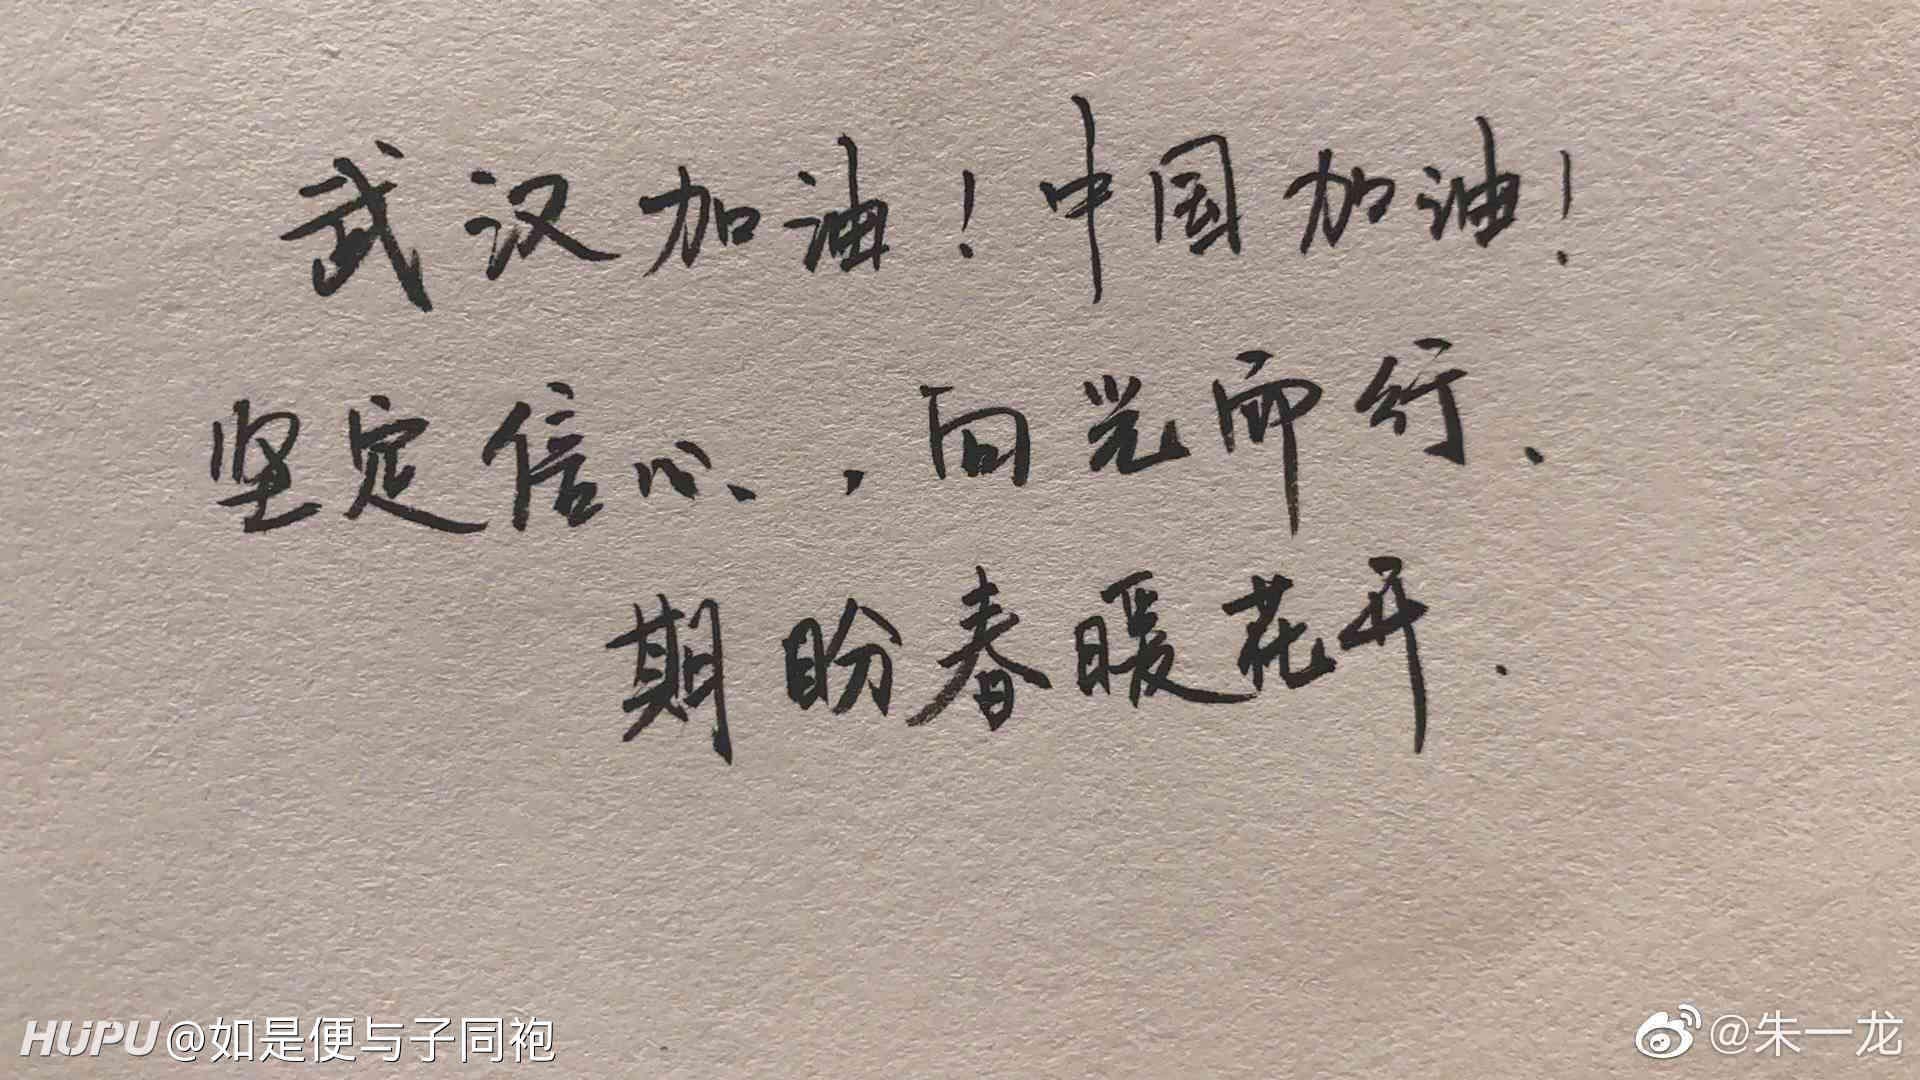 武汉加油！中国加油！
坚定信心，向光而行.
期盼春暖花开.
HUPU @如是便与子同袍
@朱一龙